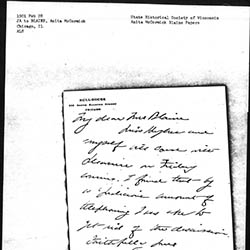 1901 Feb 28
JA to BLAINE, Anita McCormick
Chicago, Il
ALS
State Historical Society of Wisconsin
Anita McCormick Blaine Papers
HULL-HOUSE
CHICAGO
My dear Mrs Blaine
Miss Hughes and
myself will come
on Friday
I find that by
a judicious amount of
telephoning I was able to
get rid of the
Faithfully yours